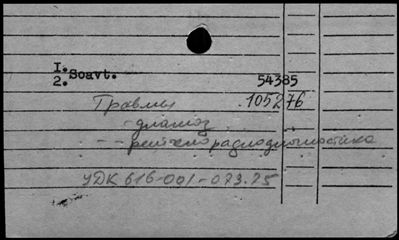 I.
2. Soavt.
54385
Травмы 105276
- диагноз
- - рентгенорадиодиагностика
УДК 616-001-073.75